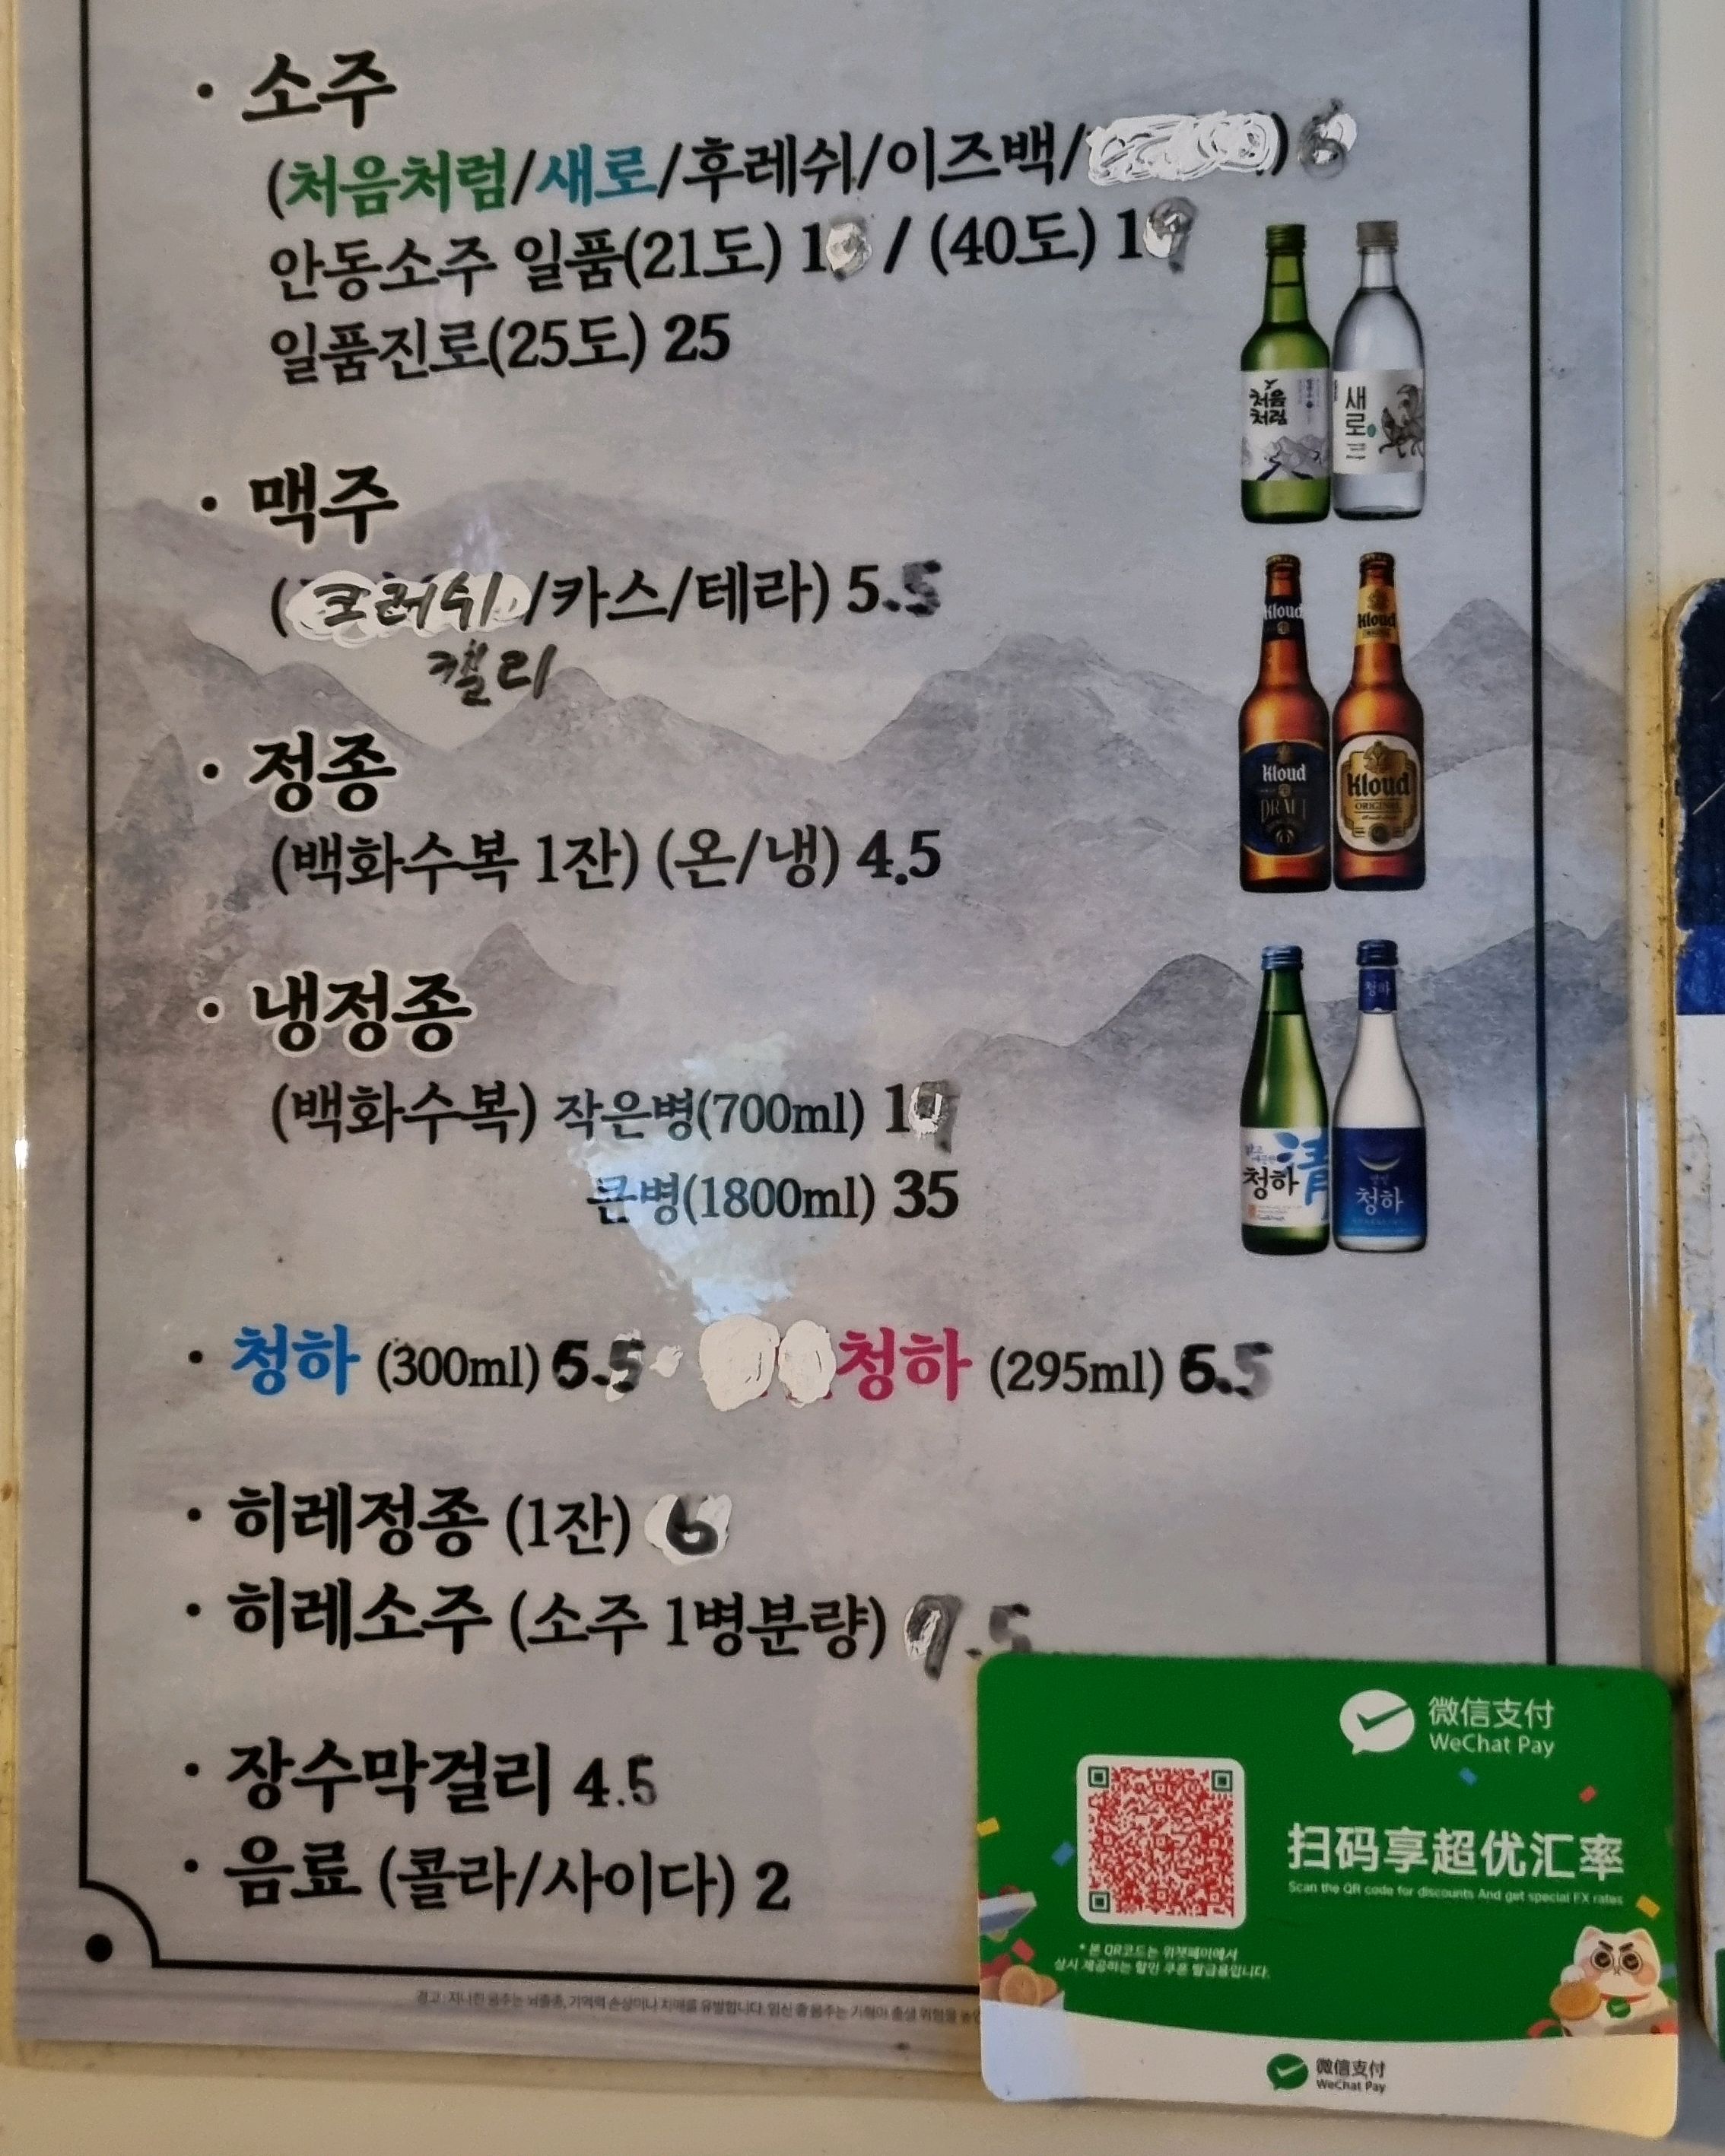 · 소주
(처음처럼/새로/후레쉬/이즈백/ ) 6
안동소주 일품(21도) 1 / (40도) 19
일품진로(25도) 25
처음
처럼
새로
· 맥주
(크러쉬/카스/테라) 5.5
켈리
Kloud
Kloud
Kloud
DRAFT
Kloud
ORIGINAL
· 정종
(백화수복 1잔) (온/냉) 4.5
· 냉정종
(백화수복) 작은병(700ml) 19
큰병(1800ml) 35
청하
清
청하
청하
· 청하 (300ml) 6.5 · 청하 (295ml) 6.5
· 히레정종 (1잔) 6
· 히레소주 (소주 1병분량) 7.5
· 장수막걸리 4.5
· 음료 (콜라/사이다) 2
경고 : 지나친 음주는 뇌졸중, 기억력 손상이나 치매를 유발합니다. 임신 중 음주는 기형아 출생 위험을
微信支付
WeChat Pay
扫码享超优汇率
Scan the QR code for discounts And get special FX rates
* 본 QR코드는 위챗페이에서
상시 제공하는 할인 쿠폰 발급용입니다.
微信支付
WeChat Pay